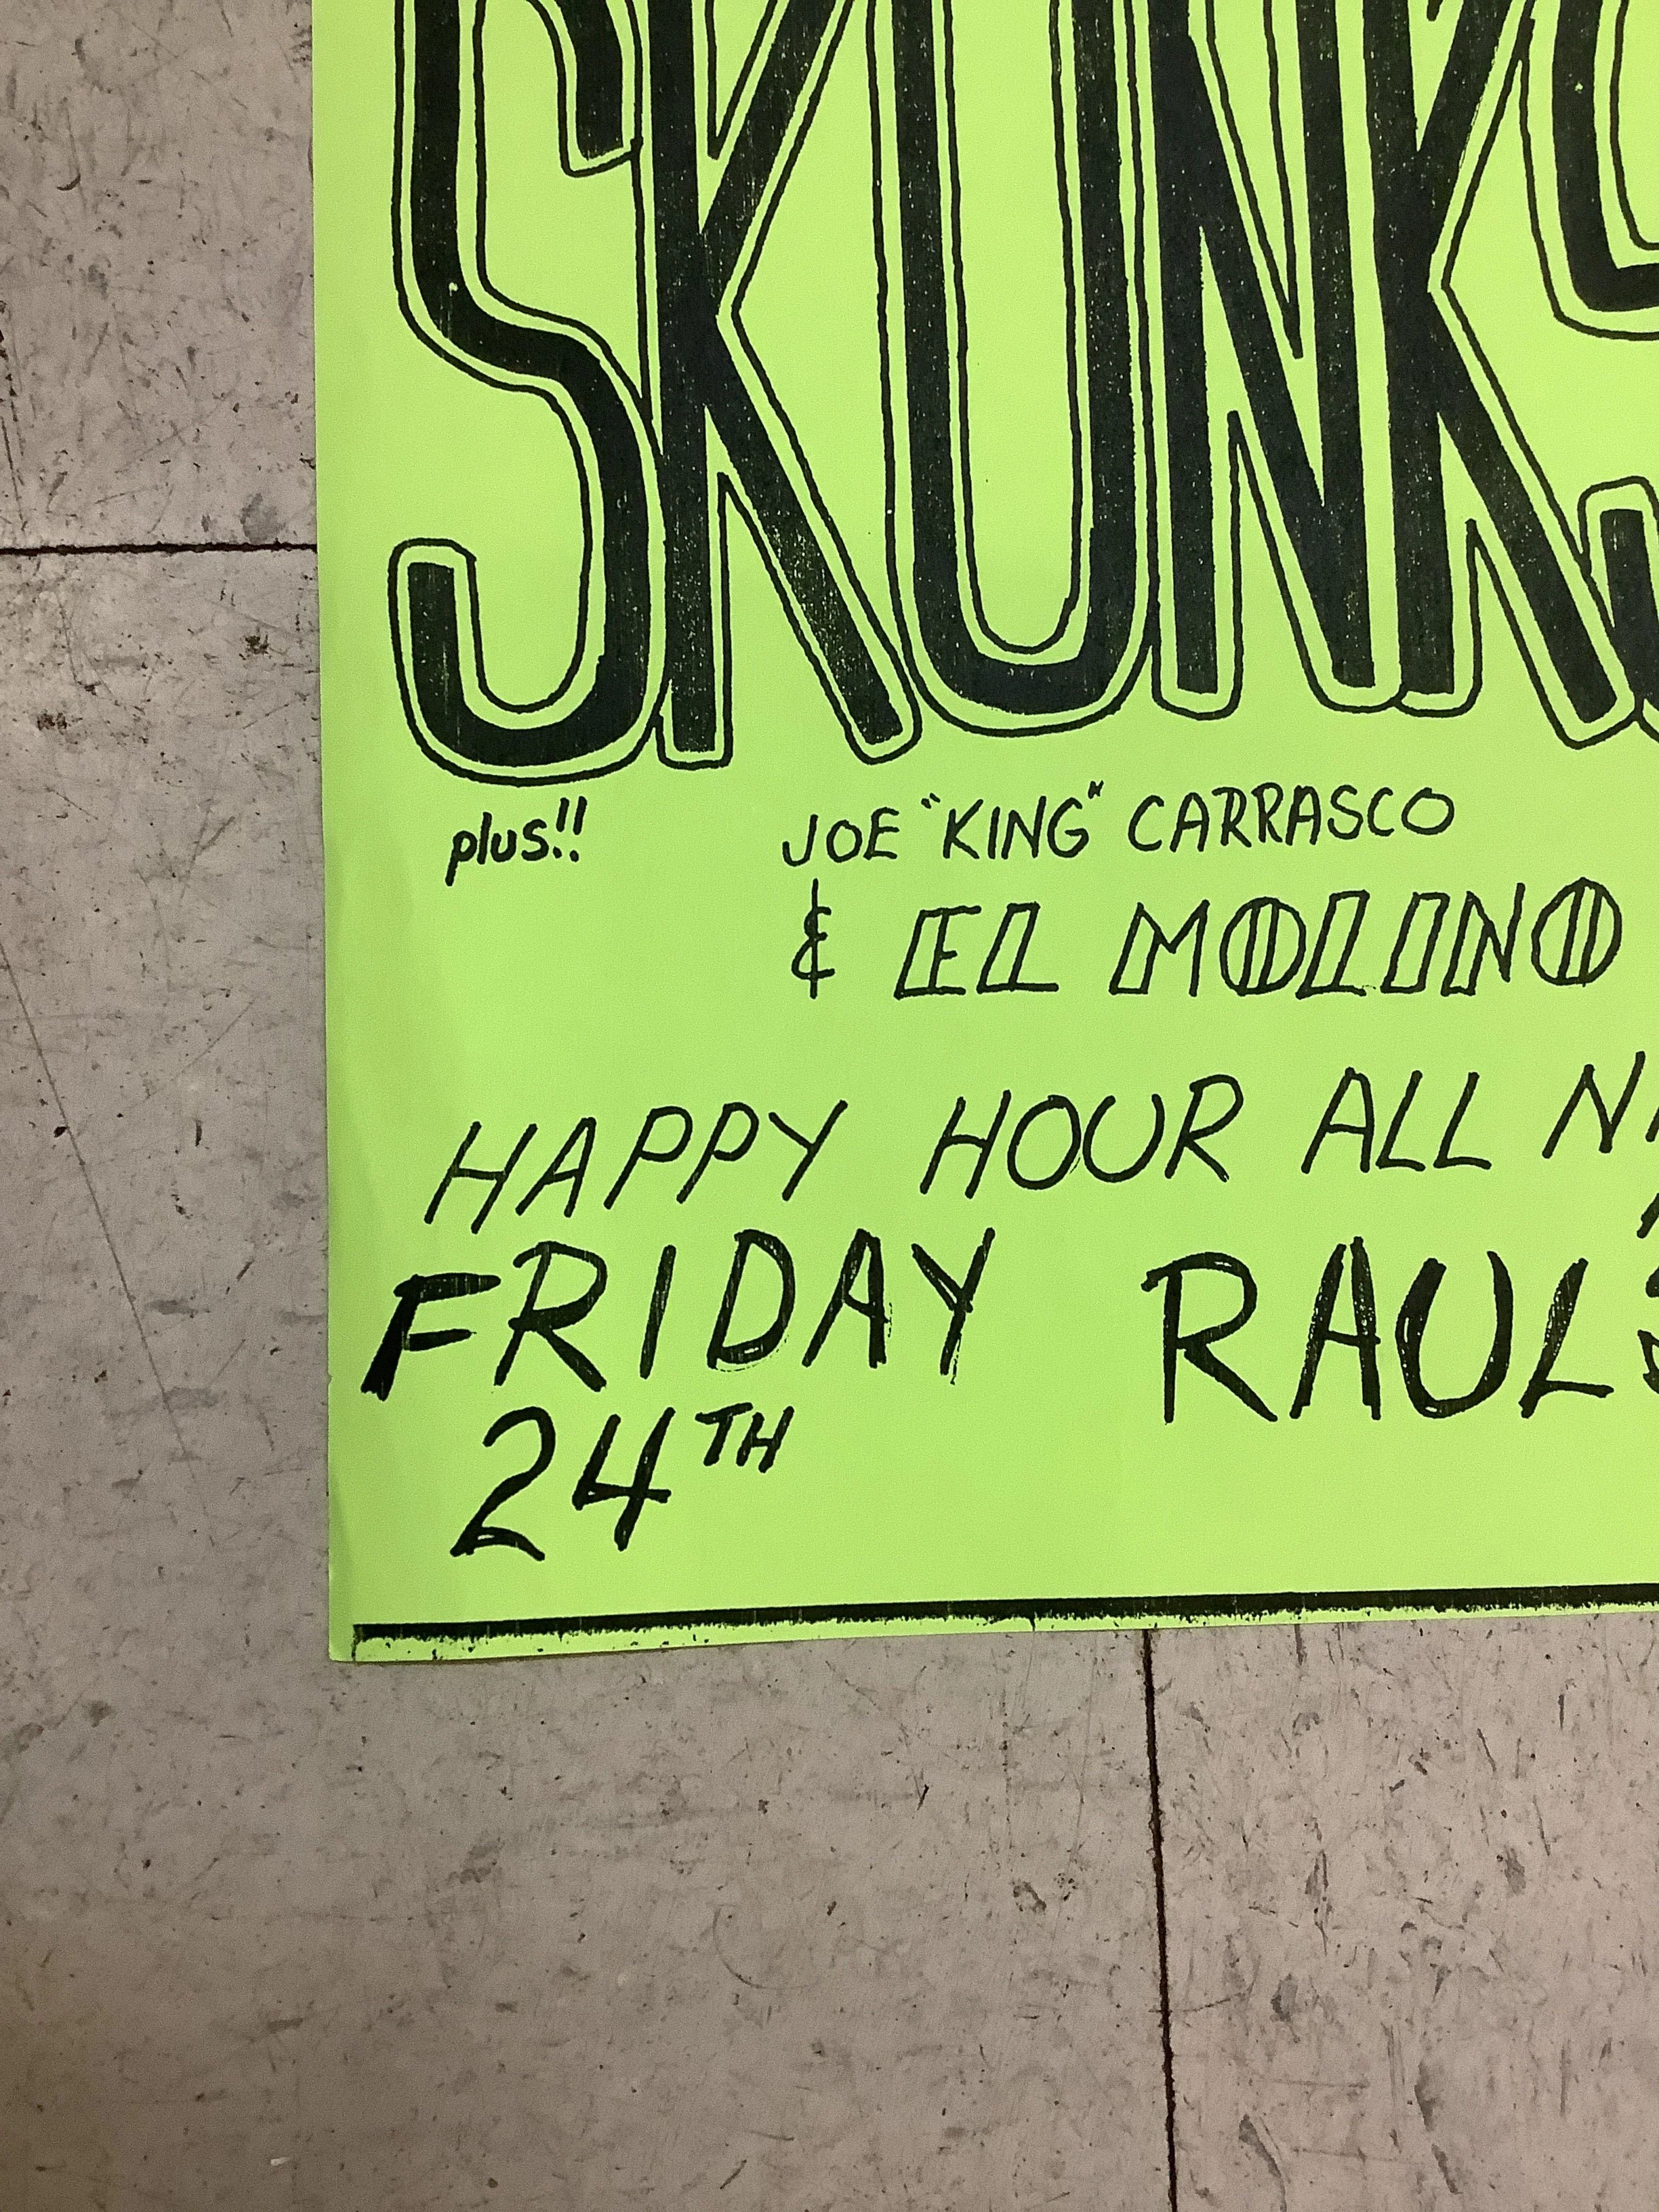 SKUNKS
plus!! JOE "KING" CARRASCO
& EL MOLINO
HAPPY HOUR ALL
FRIDAY RAUL'S
24TH